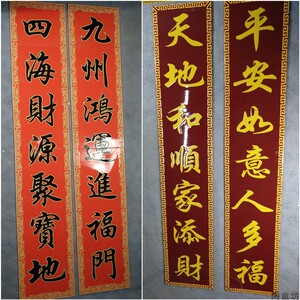 九州鴻運進福門
四海財源聚寶地
平安如意人多福
天地和順家添財